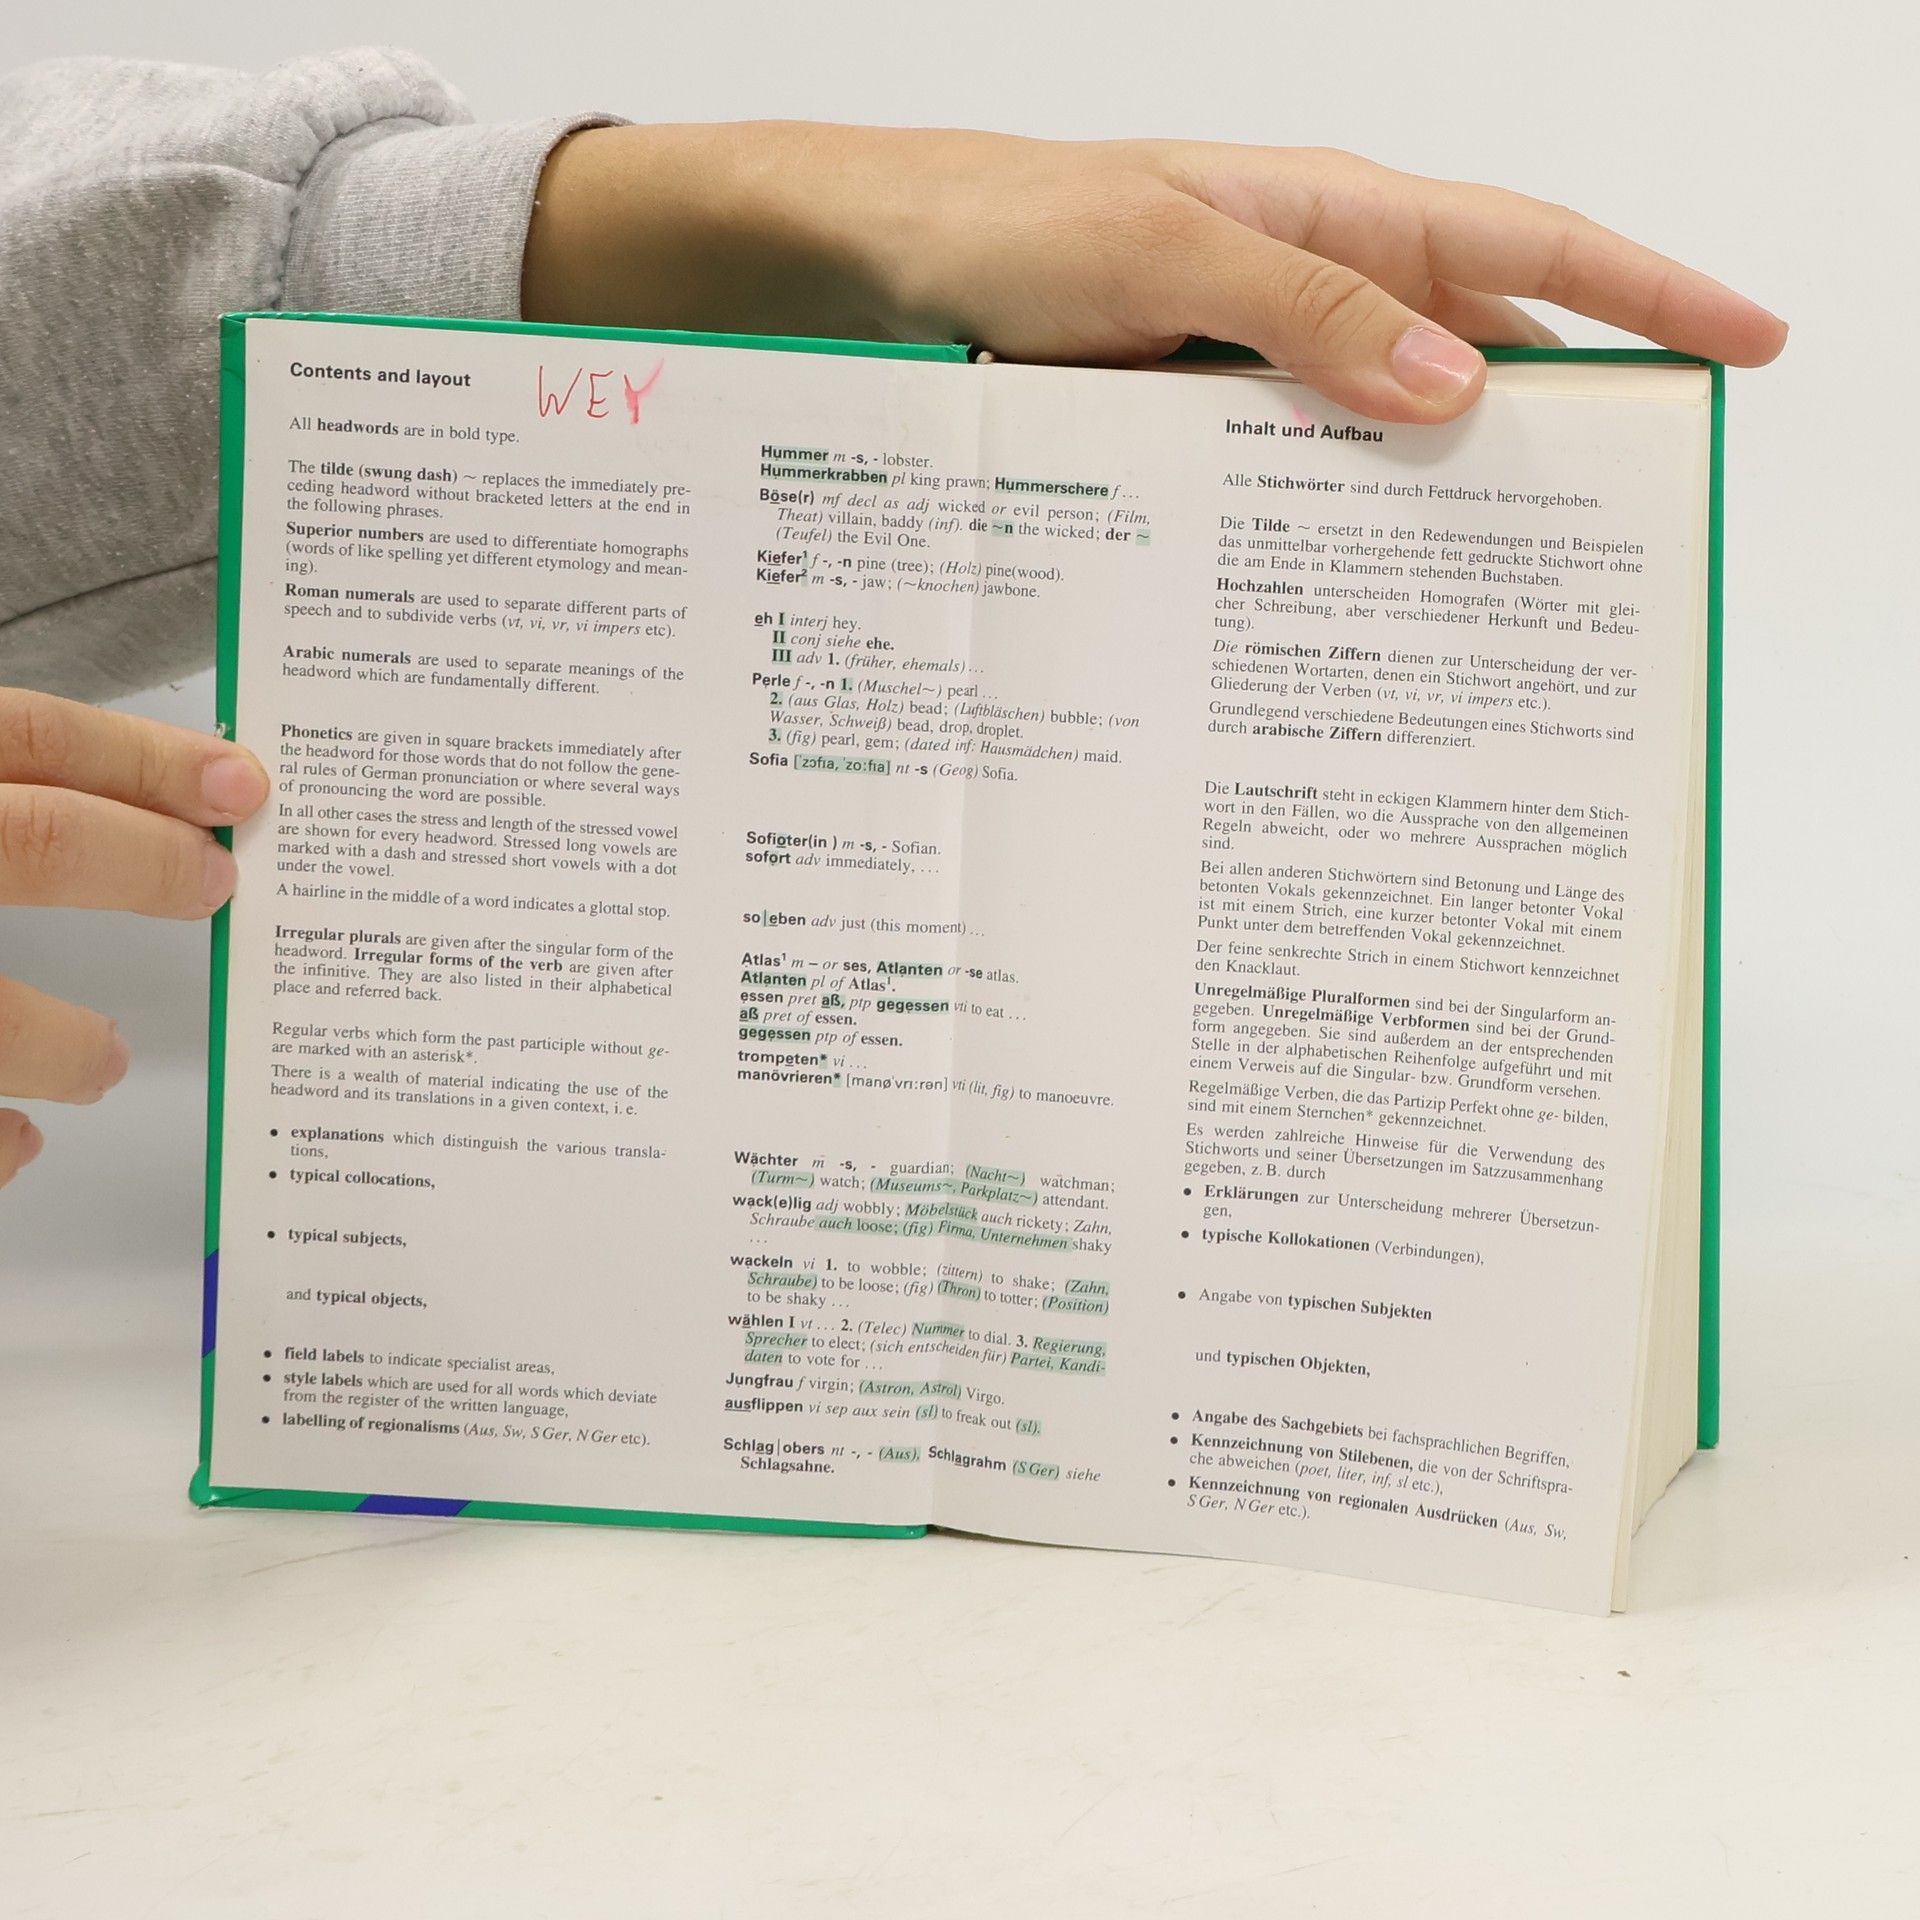 Contents and layout
WEY
All headwords are in bold type.
The tilde (swung dash) ~ replaces the immediately pre-
ceding headword without bracketed letters at the end in
the following phrases.
Superior numbers are used to differentiate homographs
(words of like spelling yet different etymology and mean-
ing).
Roman numerals are used to separate different parts of
speech and to subdivide verbs (vt, vi, vr, vi impers etc).
Arabic numerals are used to separate meanings of the
headword which are fundamentally different.
Phonetics are given in square brackets immediately after
the headword for those words that do not follow the gene-
ral rules of German pronunciation or where several ways
of pronouncing the word are possible.
In all other cases the stress and length of the stressed vowel
are shown for every headword. Stressed long vowels are
marked with a dash and stressed short vowels with a dot
under the vowel.
A hairline in the middle of a word indicates a glottal stop.
Irregular plurals are given after the singular form of the
headword. Irregular forms of the verb are given after
the infinitive. They are also listed in their alphabetical
place and referred back.
Regular verbs which form the past participle without ge-
are marked with an asterisk*.
There is a wealth of material indicating the use of the
headword and its translations in a given context, i. e.
• explanations which distinguish the various transla-
tions,
• typical collocations,
• typical subjects,
and typical objects,
• field labels to indicate specialist areas,
• style labels which are used for all words which deviate
from the register of the written language,
• labelling of regionalisms (Aus, Sw, S Ger, N Ger etc).
Hummer m -s, - lobster.
Hummerkrabben pl king prawn; Hummerschere f ...
Böse(r) mf decl as adj wicked or evil person; (Film,
Theat) villain, baddy (inf). die ~n the wicked; der ~
(Teufel) the Evil One.
Kiefer¹ f -, -n pine (tree); (Holz) pine(wood).
Kiefer² m -s, - jaw; (~knochen) jawbone.
eh I interj hey.
II conj siehe ehe.
III adv 1. (früher, ehemals) ...
Perle f -, -n 1. (Muschel~) pearl ...
2. (aus Glas, Holz) bead; (Luftbläschen) bubble; (von
Wasser, Schweiß) bead, drop, droplet.
3. (fig) pearl, gem; (dated inf: Hausmädchen) maid.
Sofia [ˈzɔfia, ˈzo:fia] nt -s (Geog) Sofia.
Sofioter(in ) m -s, - Sofian.
sofort adv immediately, ...
so|eben adv just (this moment) ...
Atlas¹ m – or ses, Atlanten or -se atlas.
Atlanten pl of Atlas¹.
essen pret aß, ptp gegessen vti to eat ...
aß pret of essen.
gegessen ptp of essen.
trompeten* vi ...
manövrieren* [manøˈvri:rən] vti (lit, fig) to manoeuvre.
Wächter m -s, - guardian; (Nacht~) watchman;
(Turm~) watch; (Museums~, Parkplatz~) attendant.
wack(e)lig adj wobbly; Möbelstück auch rickety; Zahn,
Schraube auch loose; (fig) Firma, Unternehmen shaky
...
wackeln vi 1. to wobble; (zittern) to shake; (Zahn,
Schraube) to be loose; (fig) (Thron) to totter; (Position)
to be shaky ...
wählen I vt ... 2. (Telec) Nummer to dial. 3. Regierung,
Sprecher to elect; (sich entscheiden für) Partei, Kandi-
daten to vote for ...
Jungfrau f virgin; (Astron, Astrol) Virgo.
ausflippen vi sep aux sein (sl) to freak out (sl).
Schlag|obers nt -, - (Aus), Schlagrahm (S Ger) siehe
Schlagsahne.
Inhalt und Aufbau
Alle Stichwörter sind durch Fettdruck hervorgehoben.
Die Tilde ~ ersetzt in den Redewendungen und Beispielen
das unmittelbar vorhergehende fett gedruckte Stichwort ohne
die am Ende in Klammern stehenden Buchstaben.
Hochzahlen unterscheiden Homografen (Wörter mit glei-
cher Schreibung, aber verschiedener Herkunft und Bedeu-
tung).
Die römischen Ziffern dienen zur Unterscheidung der ver-
schiedenen Wortarten, denen ein Stichwort angehört, und zur
Gliederung der Verben (vt, vi, vr, vi impers etc.).
Grundlegend verschiedene Bedeutungen eines Stichworts sind
durch arabische Ziffern differenziert.
Die Lautschrift steht in eckigen Klammern hinter dem Stich-
wort in den Fällen, wo die Aussprache von den allgemeinen
Regeln abweicht, oder wo mehrere Aussprachen möglich
sind.
Bei allen anderen Stichwörtern sind Betonung und Länge des
betonten Vokals gekennzeichnet. Ein langer betonter Vokal
ist mit einem Strich, eine kurzer betonter Vokal mit einem
Punkt unter dem betreffenden Vokal gekennzeichnet.
Der feine senkrechte Strich in einem Stichwort kennzeichnet
den Knacklaut.
Unregelmäßige Pluralformen sind bei der Singularform an-
gegeben. Unregelmäßige Verbformen sind bei der Grund-
form angegeben. Sie sind außerdem an der entsprechenden
Stelle in der alphabetischen Reihenfolge aufgeführt und mit
einem Verweis auf die Singular- bzw. Grundform versehen.
Regelmäßige Verben, die das Partizip Perfekt ohne ge- bilden,
sind mit einem Sternchen* gekennzeichnet.
Es werden zahlreiche Hinweise für die Verwendung des
Stichworts und seiner Übersetzungen im Satzzusammenhang
gegeben, z. B. durch
• Erklärungen zur Unterscheidung mehrerer Übersetzun-
gen,
• typische Kollokationen (Verbindungen),
• Angabe von typischen Subjekten
und typischen Objekten,
• Angabe des Sachgebiets bei fachsprachlichen Begriffen,
• Kennzeichnung von Stilebenen, die von der Schriftspra-
che abweichen (poet, liter, inf, sl etc.),
• Kennzeichnung von regionalen Ausdrücken (Aus, Sw,
S Ger, N Ger etc.).